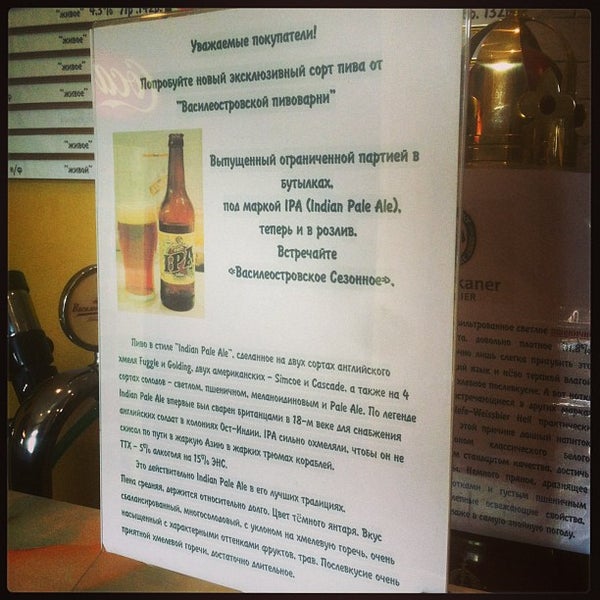 "живое" 4.3%
"живое"
"живое"
"живое"
"живое"
"живой"
Уважаемые покупатели!
Попробуйте новый эксклюзивный сорт пива от
"Василеостровской пивоварни"
Выпущенный ограниченной партией в
бутылках,
под маркой IPA (Indian Pale Ale),
теперь и в розлив.
Встречайте
«Василеостровское Сезонное».
IPA
Пиво в стиле "Indian Pale Ale", сделанное на двух сортах английского
хмеля Fuggle и Golding, двух американских – Simcoe и Cascade, а также на 4
сортах солодов – светлом, пшеничном, меланоидиновым и Pale Ale. По легенде
Indian Pale Ale впервые был сварен британцами в 18-м веке для снабжения
английских солдат в колониях Ост-Индии. IPA сильно охмеляли, чтобы он не
скисал по пути в жаркую Азию в жарких трюмах кораблей.
ТТХ – 5% алкоголя на 15% ЭНС.
Это действительно Indian Pale Ale в его лучших традициях.
Пена средняя, держится относительно долго. Цвет тёмного янтаря. Вкус
сбалансированный, многосолодовый, с уклоном на хмелевую горечь, очень
насыщенный с характерными оттенками фруктов, трав. Послевкусие очень
приятной хмелевой горечи, достаточно длительное.
kaner
IER
светлое
довольно плотное
лишь слегка
послевкусие. А вот
встречающиеся в других
Hefe-Weissbier Hell практически
этой причине данный напиток
классического белого
стандартом качества,
Немного пряное,
и густым пшеничным
освежающие свойства,
даже в самую знойную погоду.